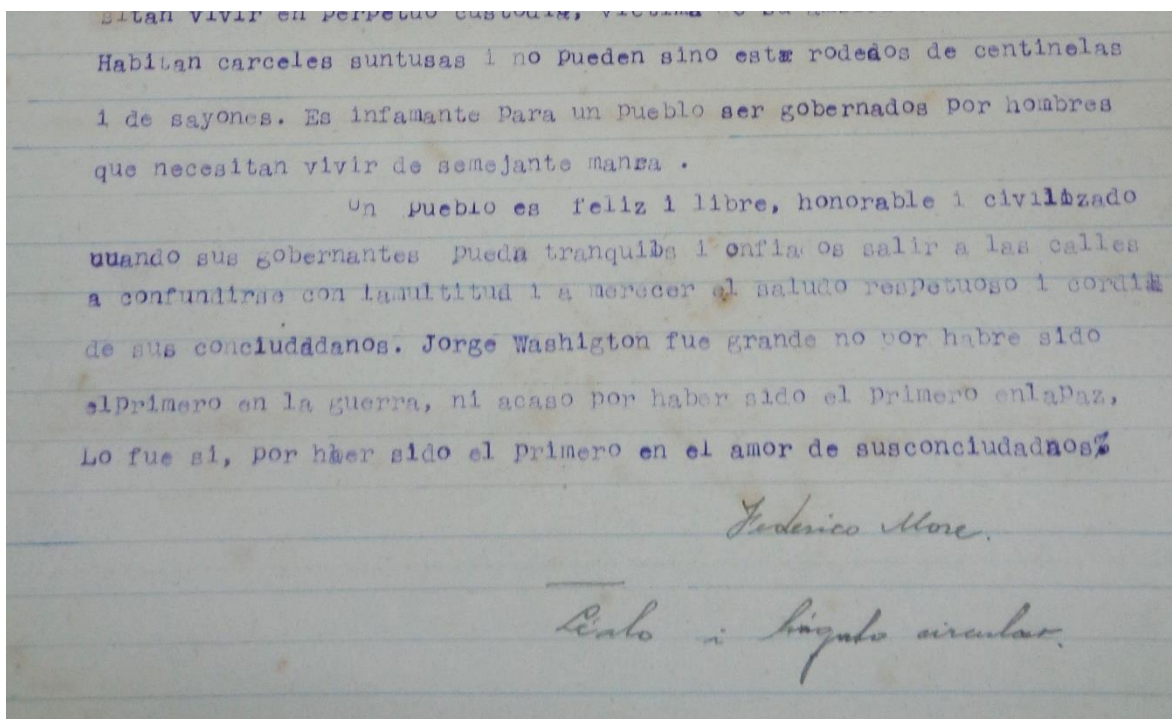 sitan vivir en perpetuo custodia, victima de su
Habitan carceles suntusas i no pueden sino estar rodedos de centinelas
i de sayones. Es infamante Para un Pueblo ser gobernados por hombres
que necesitan vivir de semejante manra .
Un pueblo es feliz i libre, honorable i civilizado
cuando sus gobernantes pueda tranquilos i onfia os salir a las calles
a confundirse con lamultitud i a merecer el saludo respetuoso i cordial
de sus conciudadanos. Jorge Washigton fue grande no por habre sido
elprimero en la guerra, ni acaso por haber sido el Primero enlaPaz,
Lo fue si, por haer sido el Primero en el amor de susconciudadnos%
Federico More.
Léalo i hágalo circular.